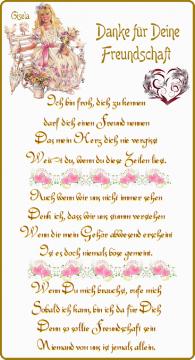 Gisela
Danke für Deine
Freundschaft
Ich bin froh, dich zu kennen
darf dich einen Freund nennen
Das mein Herz dich nie vergisst
Weißt du, wenn du diese Zeilen liest.
Auch wenn wir uns nicht immer sehen
Denk ich, dass wir uns stumm verstehen
Wenn dir mein Gehör abwesend erscheint
Ist es doch niemals böse gemeint.
Wenn Du mich brauchst, rufe mich
Sobald ich kann, bin ich da für Dich
Denn so sollte Freundschaft sein
Niemand von uns ist jemals allein.